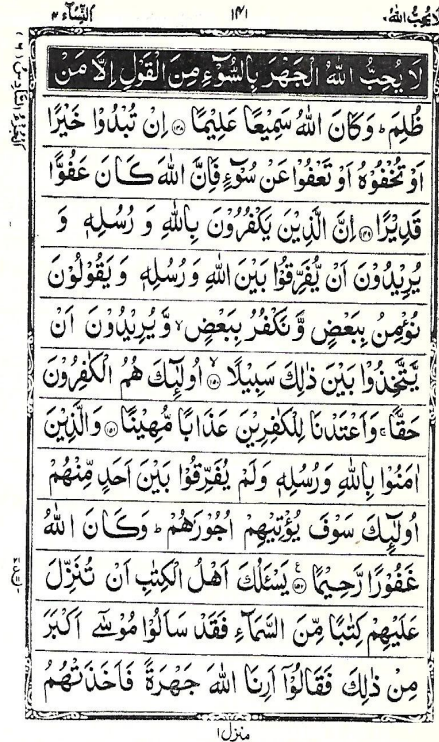 لا یحب اللہ ۶
۱۴۱
النسآء ۴
لَا يُحِبُّ اللهُ الْجَهْرَ بِالسُّوْٓءِ مِنَ الْقَوْلِ اِلَّا مَنْ
ظُلِمَ ؕ وَكَانَ اللهُ سَمِيْعًا عَلِيْمًا ﴿۱۴۸﴾ اِنْ تُبْدُوْا خَيْرًا
اَوْ تُخْفُوْهُ اَوْ تَعْفُوْا عَنْ سُوْٓءٍ فَاِنَّ اللهَ كَانَ عَفُوًّا
قَدِيْرًا ﴿۱۴۹﴾ اِنَّ الَّذِيْنَ يَكْفُرُوْنَ بِاللهِ وَ رُسُلِهٖ وَ
يُرِيْدُوْنَ اَنْ يُّفَرِّقُوْا بَيْنَ اللهِ وَرُسُلِهٖ وَيَقُوْلُوْنَ
نُؤْمِنُ بِبَعْضٍ وَّنَكْفُرُ بِبَعْضٍ ۙ وَّيُرِيْدُوْنَ اَنْ
يَّتَّخِذُوْا بَيْنَ ذٰلِكَ سَبِيْلًا ﴿۱۵۰﴾ ۙ اُولٰٓئِكَ هُمُ الْكٰفِرُوْنَ
حَقًّا ۚ وَاَعْتَدْنَا لِلْكٰفِرِيْنَ عَذَابًا مُّهِيْنًا ﴿۱۵۱﴾ وَالَّذِيْنَ
اٰمَنُوْا بِاللهِ وَرُسُلِهٖ وَلَمْ يُفَرِّقُوْا بَيْنَ اَحَدٍ مِّنْهُمْ
اُولٰٓئِكَ سَوْفَ يُؤْتِيْهِمْ اُجُوْرَهُمْ ؕ وَكَانَ اللهُ
غَفُوْرًا رَّحِيْمًا ﴿۱۵۲﴾ ع يَسْـَٔلُكَ اَهْلُ الْكِتٰبِ اَنْ تُنَزِّلَ
عَلَيْهِمْ كِتٰبًا مِّنَ السَّمَآءِ فَقَدْ سَاَلُوْا مُوْسٰٓى اَكْبَرَ
مِنْ ذٰلِكَ فَقَالُوْٓا اَرِنَا اللهَ جَهْرَةً فَاَخَذَتْهُمُ
منزل ۱